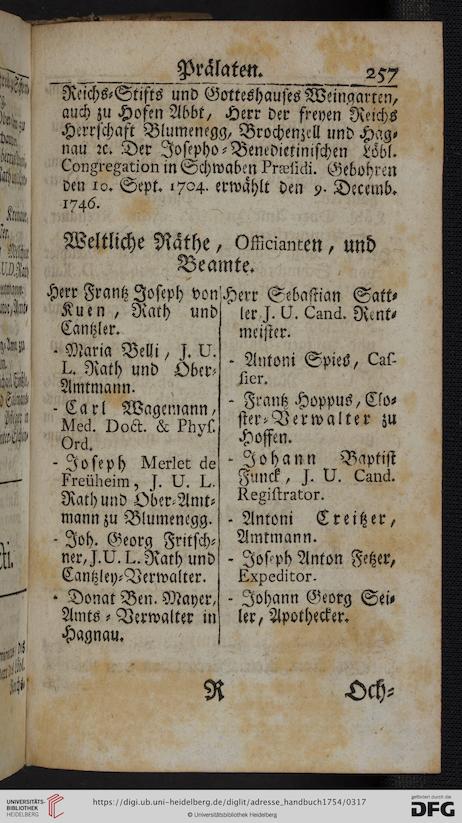 Prälaten. 257
Reichs-Stifts und Gotteshauses Weingarten,
auch zu Hofen Abbt, Herr der freyen Reichs
Herrschaft Blumenegg, Brochenzell und Hag-
nau ꝛc. Der Josepho-Benedictinischen Löbl.
Congregation in Schwaben Præsidi. Gebohren
den 10. Sept. 1704. erwählt den 9. Decemb.
1746.
Weltliche Räthe, Officianten, und
Beamte.
Herr Frantz Joseph von
Kuen, Rath und
Cantzler.
- Maria Belli, J. U.
L. Rath und Ober-
Amtmann.
- Carl Wagemann,
Med. Doct. & Phys.
Ord.
- Joseph Merlet de
Freüheim, J. U. L.
Rath und Ober-Amt-
mann zu Blumenegg.
- Joh. Georg Fritsch-
ner, J. U. L. Rath und
Cantzley-Verwalter.
- Donat Ben. Mayer,
Amts-Verwalter in
Hagnau.
Herr Sebastian Satt-
ler J. U. Cand. Rent-
meister.
- Antoni Spies, Cas-
sier.
- Frantz Hoppus, Clo-
ster-Verwalter zu
Hoffen.
- Johann Baptist
Funck, J. U. Cand.
Registrator.
- Antoni Creitzer,
Amtmann.
- Joseph Anton Fetzer,
Expeditor.
- Johann Georg Sei-
ler, Apothecker.
R Och-
UNIVERSITÄTS-
BIBLIOTHEK
HEIDELBERG
https://digi.ub.uni-heidelberg.de/diglit/adresse_handbuch1754/0317
© Universitätsbibliothek Heidelberg
gefördert durch die
DFG